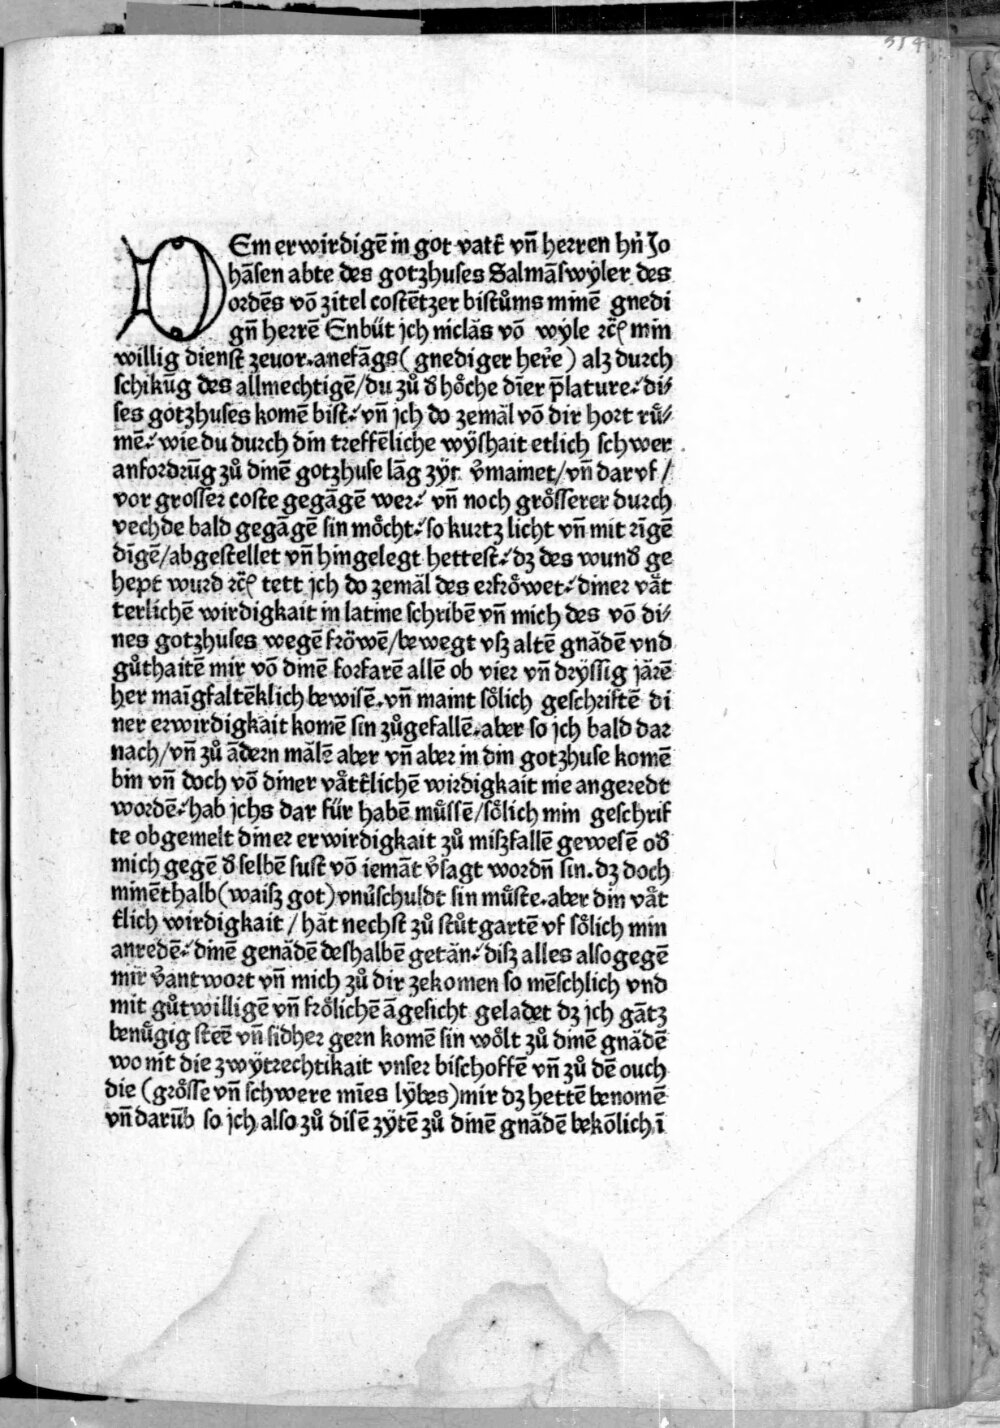 354
DEm erwirdigē in got vatt̃ vn̄ herren hn̄ Jo
hãsen abte des gotzhuses Salmãswÿler des
ordēs võ zitel costētzer bistůms minē gnedi
gn̄ herrē Enbüt jch niclãs võ wÿle ꝛc̃ min
willig dienst zeuor. anefãgs ( gnediger her̃e ) alz durch
schikũg des allmechtigē / du zů d̕ hoͤche dīer p̃lature: di⸗
ses gotzhuses komē bist: vn̄ jch do zemãl võ dir hort rů⸗
mē: wie du durch din treffēliche wÿshait etlich schwer
anfordrũg zů dinē gotzhuse lãg zÿt v̕mainet / vn̄ dar vf /
vor grosser coste gegãgē wer: vn̄ noch groͤsserer durch
vechde bald gegãgē sin moͤcht: so kurtz licht vn̄ mit rīgē
dīgē / abgestellet vn̄ hingelegt hettest: dz des wund̕ ge
hept wurd ꝛc̃ tett jch do zemãl des erfroͤwet: diner vaͤt
terlichē wirdigkait in latine schribē vn̄ mich des võ di⸗
nes gotzhuses wegē froͤwē / bewegt vsz altē gnãdē vnd
gůthaitē mir võ dinē forfarē allē ob vier vn̄ drÿssig jãrē
her maīgfaltēklich bewisē. vn̄ maint soͤlich geschriftē di
ner erwirdigkait komē sin zůgefallē. aber so jch bald dar
nach / vn̄ zů ãdern mãlē aber vn̄ aber in din gotzhuse komē
bin vn̄ doch võ diner vaͤtt̃lichē wirdigkait nie angeredt
wordē: hab jchs dar für habē muͤssē / soͤlich min geschrif
te obgemelt diner erwirdigkait zů miszfallē gewesē od̕
mich gegē d̕ selbē sust võ iemãt v̕sagt wordn̄ sin. dz doch
minēthalb ( waisz got ) vnůschuldt sin muͤste. aber din vaͤt
t̃lich wirdigkait / hãt nechst zů stůtgartē vf soͤlich min
anredē: dinē genãdē deshalbē getãn: disz alles also gegē
mir v̕antwort vn̄ mich zů dir zekomen so mēschlich vnd
mit gůtwilligē vn̄ froͤlichē ãgesicht geladet dz jch gãtz
benuͤgig steē vn̄ sidher gern komē sin woͤlt zů dinē gnãdē
wo nit die zwÿtrechtikait vnser bischoffē vn̄ zů dē ouch
die ( groͤsse vn̄ schwere mīes lÿbes ) mir dz hettē benomē
vn̄ darũb so jch also zů disē zÿtē zů dinē gnãdē bekõlich ī